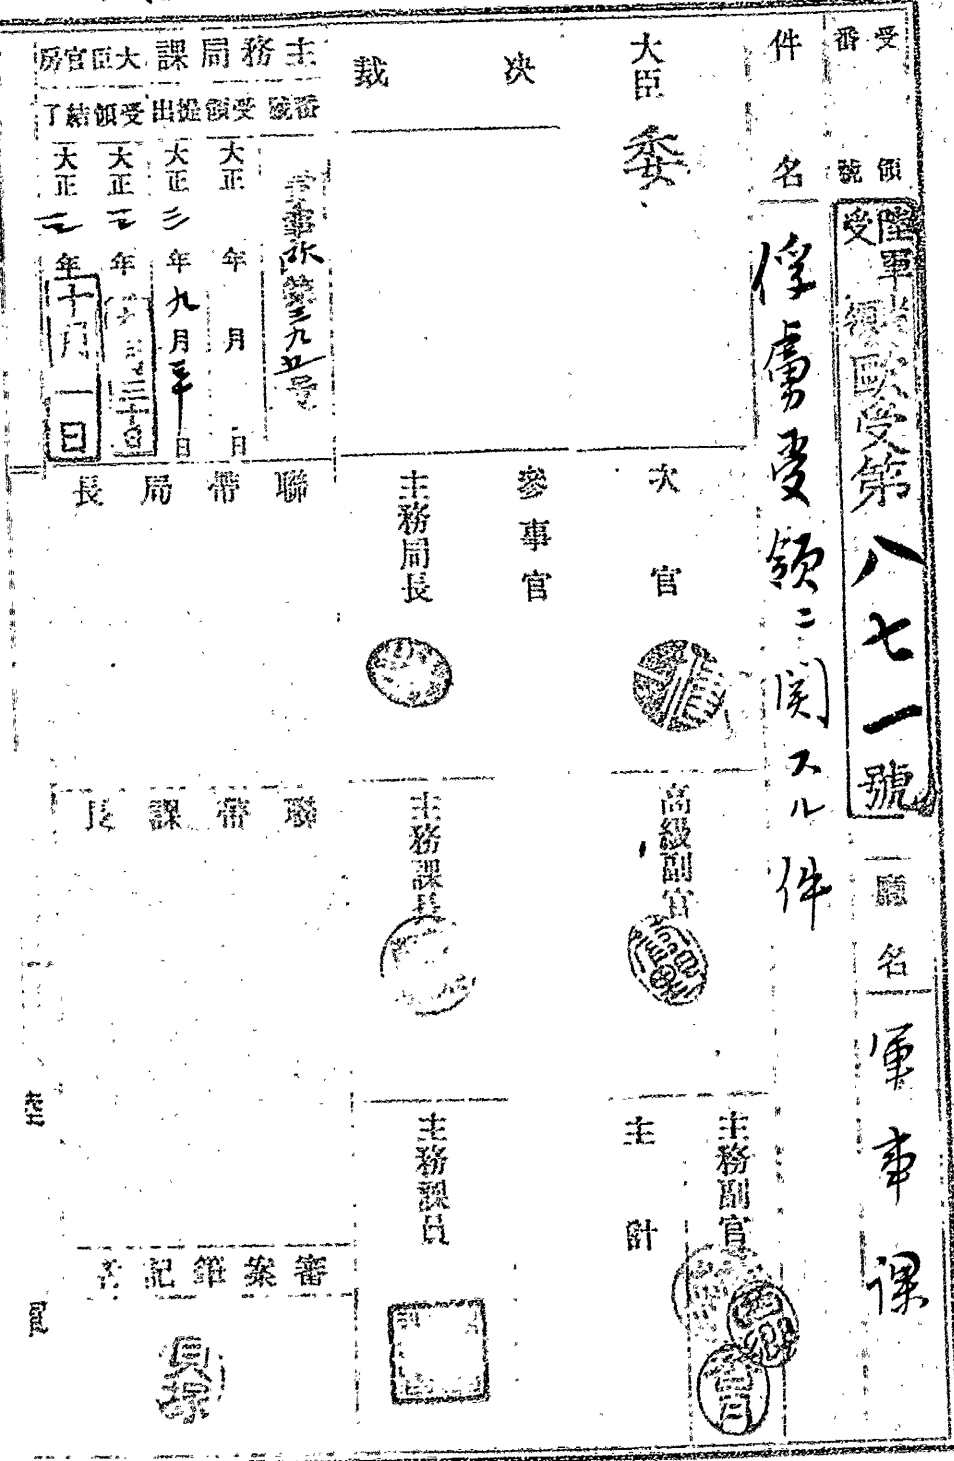 受領番號
陸軍省受領
歐受第八七一號
廳名
軍事課
件名
俘虜受領ニ関スル件
大臣
委
次官
高級副官
主務副官
主計
決裁
參事官
主務局長
主務課長
主務課員
主務局課
番號
軍事欧第三九五号
受領
大正 年 月 日
提出
大正三年九月三十日
大臣官房
受領
大正三年 三十日
結了
大正三年十月一日
聯帶局長
聯帶課長
審案筆記者
貝塚
陸